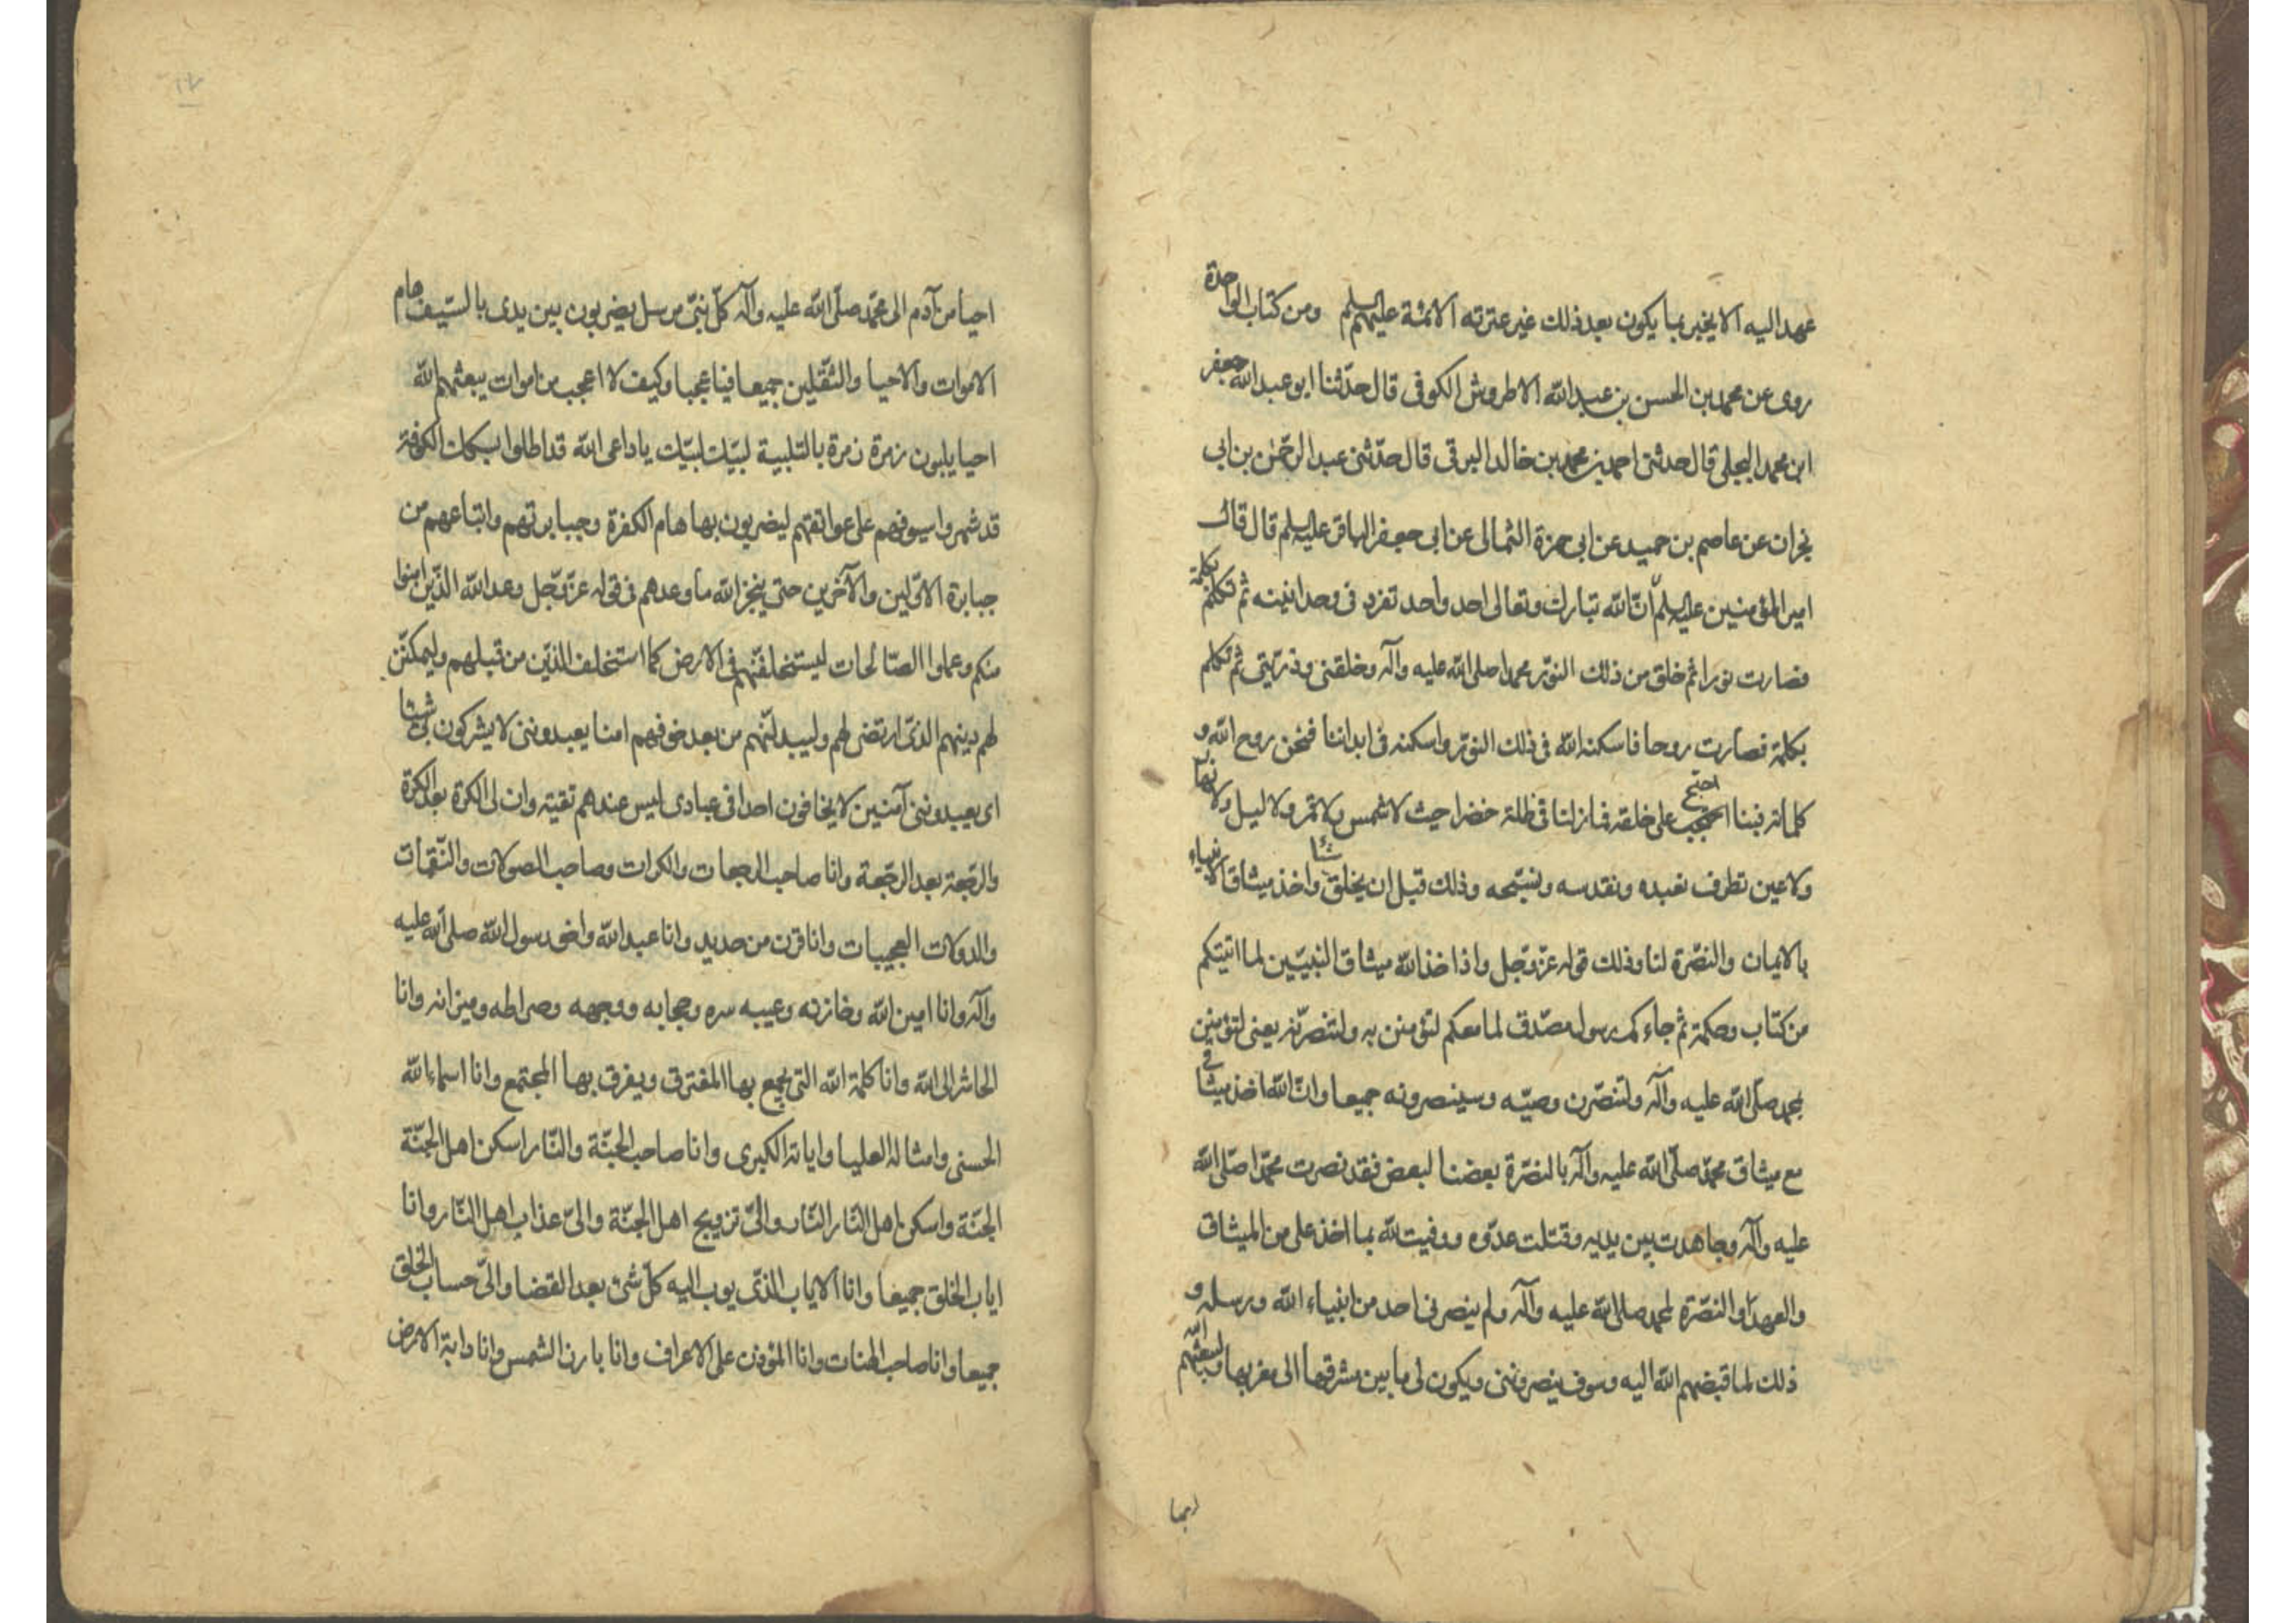 عهد اليه الا يخبر بما يكون بعد ذلك غير عترته الائمة عليهم السلم ومن كتاب الواحدة
روى عن محمد بن الحسن بن عبد الله الاطروش الكوفى قال حدّثنا ابو عبد الله جعفر
ابن محمد البجلى قال حدثنى احمد بن محمد بن خالد البرقى قال حدّثنى عبد الرحمن بن ابى
نجران عن عاصم بن حميد عن ابى حمزة الثمالى عن ابى جعفر الباقر عليه السلم قال قال
امير المؤمنين عليه السلم انّ الله تبارك وتعالى احد واحد تفرد فى وحدانيته ثم تكلم بكلمة
فصارت نورا ثم خلق من ذلك النّور محمدا صلى الله عليه وآله وخلقنى وذرّيتى ثم تكلم
بكلمة فصارت روحا فاسكنه الله فى ذلك النّور واسكنه فى ابداننا فنحن روح الله و
كلماته فبنا احتج على خلقه فما زلنا فى ظلة خضرا حيث لا شمس ولا قمر ولا ليل ولا نهار
ولا عين تطرف نعبده ونقدسه ونسبّحه وذلك قبل ان يخلق شيئا واخذ ميثاق الانبياء
بالايمان والنصّرة لنا وذلك قوله عزّ وجل واذ اخذ الله ميثاق النّبيّين لما اتيتكم
من كتاب وحكمة ثم جاءكم رسول مصدّق لما معكم لتؤمنن به ولتنصرّنه يعنى لتؤمنن
بمحمد صلّى الله عليه وآله ولتنصّرن وصيّه وسينصرونه جميعا وانّ الله اخذ ميثاقى
مع ميثاق محمّد صلّى الله عليه وآله بالنصّرة بعضنا لبعض فقد نصرت محمّدا صلّى الله
عليه وآله وجاهدت بين يديه وقتلت عدّوه ووفيت لله بما اخذ على من الميثاق
والعهد والنصّرة لمحمد صلى الله عليه وآله ولم ينصرنى احد من انبياء الله ورسله و
ذلك لما قبضهم الله اليه وسوف ينصروننى ويكون لى ما بين مشرقها الى مغربها وليبعثهم الله
احيا
احيا من آدم الى محمّد صلّى الله عليه وآله كلّ نبىّ مرسل يضربون بين يدى بالسّيف هام
الاموات والاحيا والثّقلين جميعا فيا عجبا وكيف لا اعجب من اموات يبعثهم الله
احيا يلبون زمرة زمرة بالتلبية لبّيك لبّيك يا داعى الله قد اطلوا بسكك الكوفة
قد شهروا سيوفهم على عواتقهم ليضربون بها هام الكفرة وجبابرتهم واتباعهم من
جبابرة الاوّلين والآخرين حتى ينجز الله ما وعدهم فى قوله عزّ وجل وعد الله الذّين امنوا
منكم وعملوا الصّالحات ليستخلفنّهم فى الارض كما استخلف الذّين من قبلهم وليمكننّ
لهم دينهم الذّى ارتضى لهم وليبدلنّهم من بعد خوفهم امنا يعبدوننى لا يشركون بى شيئا
اى يعبدوننى آمنين لا يخافون احدا فى عبادى ليس عندهم تقية وان لى الكرة بعد الكرّة
والرّجعة بعد الرّجعة وانا صاحب الرجعات والكرات وصاحب الصولات والنّقمات
والدولات العجيبات وانا قرن من حديد وانا عبد الله واخو رسول الله صلى الله عليه
وآله وانا امين الله وخازنه وعيبه سره وحجابه ووجهه وصراطه وميزانه وانا
الحاشر الى الله وانا كلمة الله التى يجمع بها المفترق ويفرق بها المجتمع وانا اسماء الله
الحسنى وامثاله العليا واياته الكبرى وانا صاحب الجنّة والنّار اسكن اهل الجنّة
الجنّة واسكن اهل النّار النّار والىّ تزويج اهل الجنّة والىّ عذاب اهل النّار وانا
اياب الخلق جميعا وانا الاياب الذّى يوب اليه كلّ شئ بعد القضا والىّ حساب الخلق
جميعا وانا صاحب الهنات وانا المؤذن على الاعراف وانا بارز الشمس وانا دابة الارض